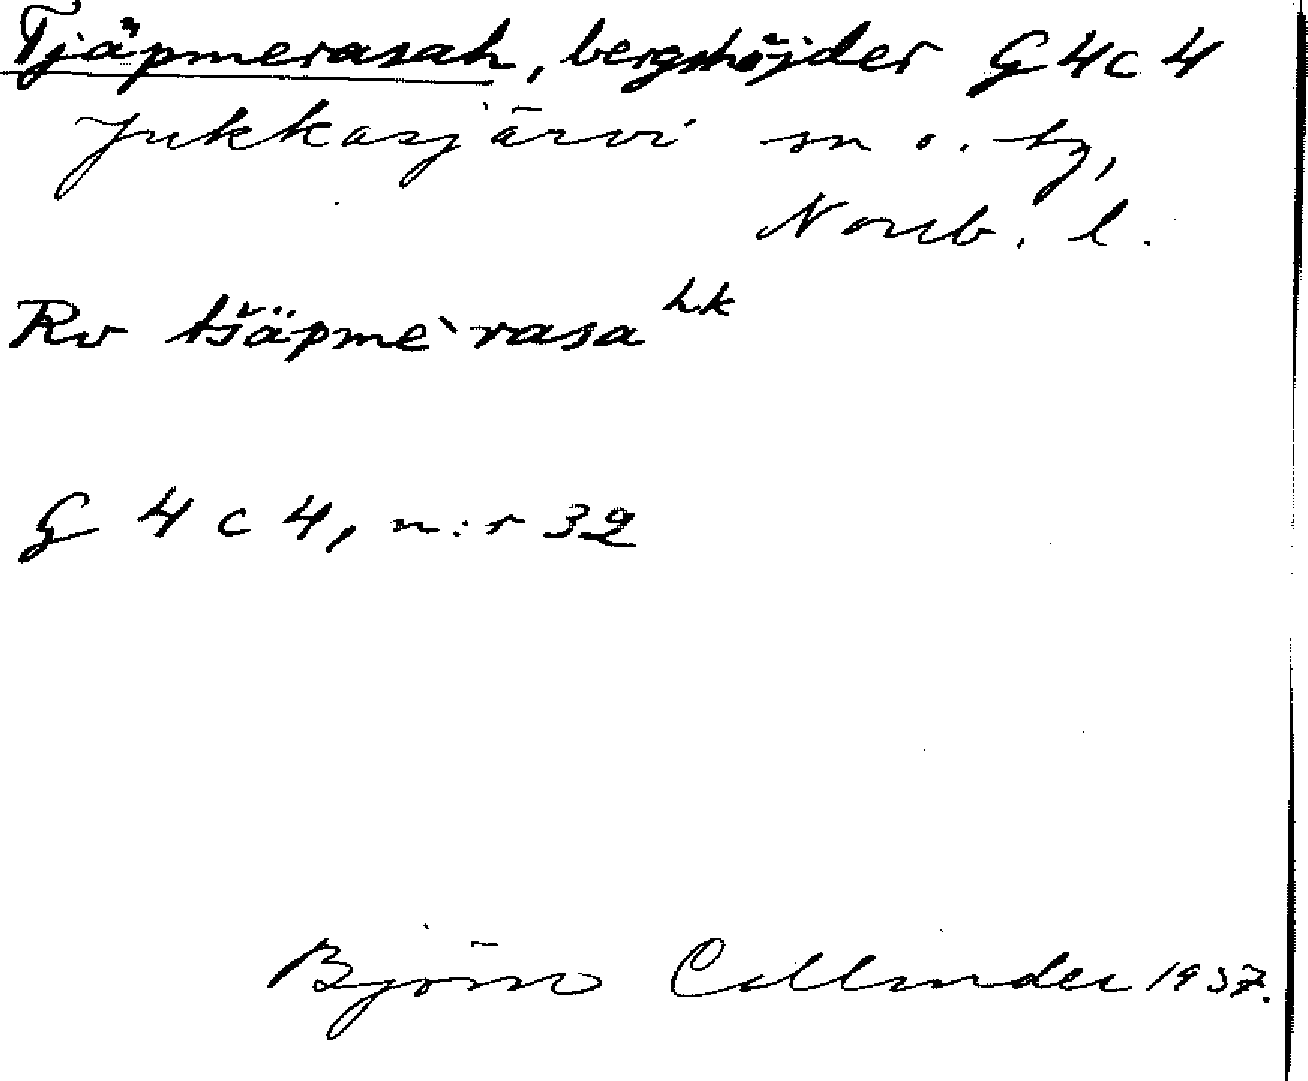 Tjäpmerasah, bergshöjder G 4 c 4
Jukkasjärvi sn o. tg,
Norrb. l.
Rv tšäpme`rasa hk
G 4 c 4, n:r 32
Björn Collinder 1937.